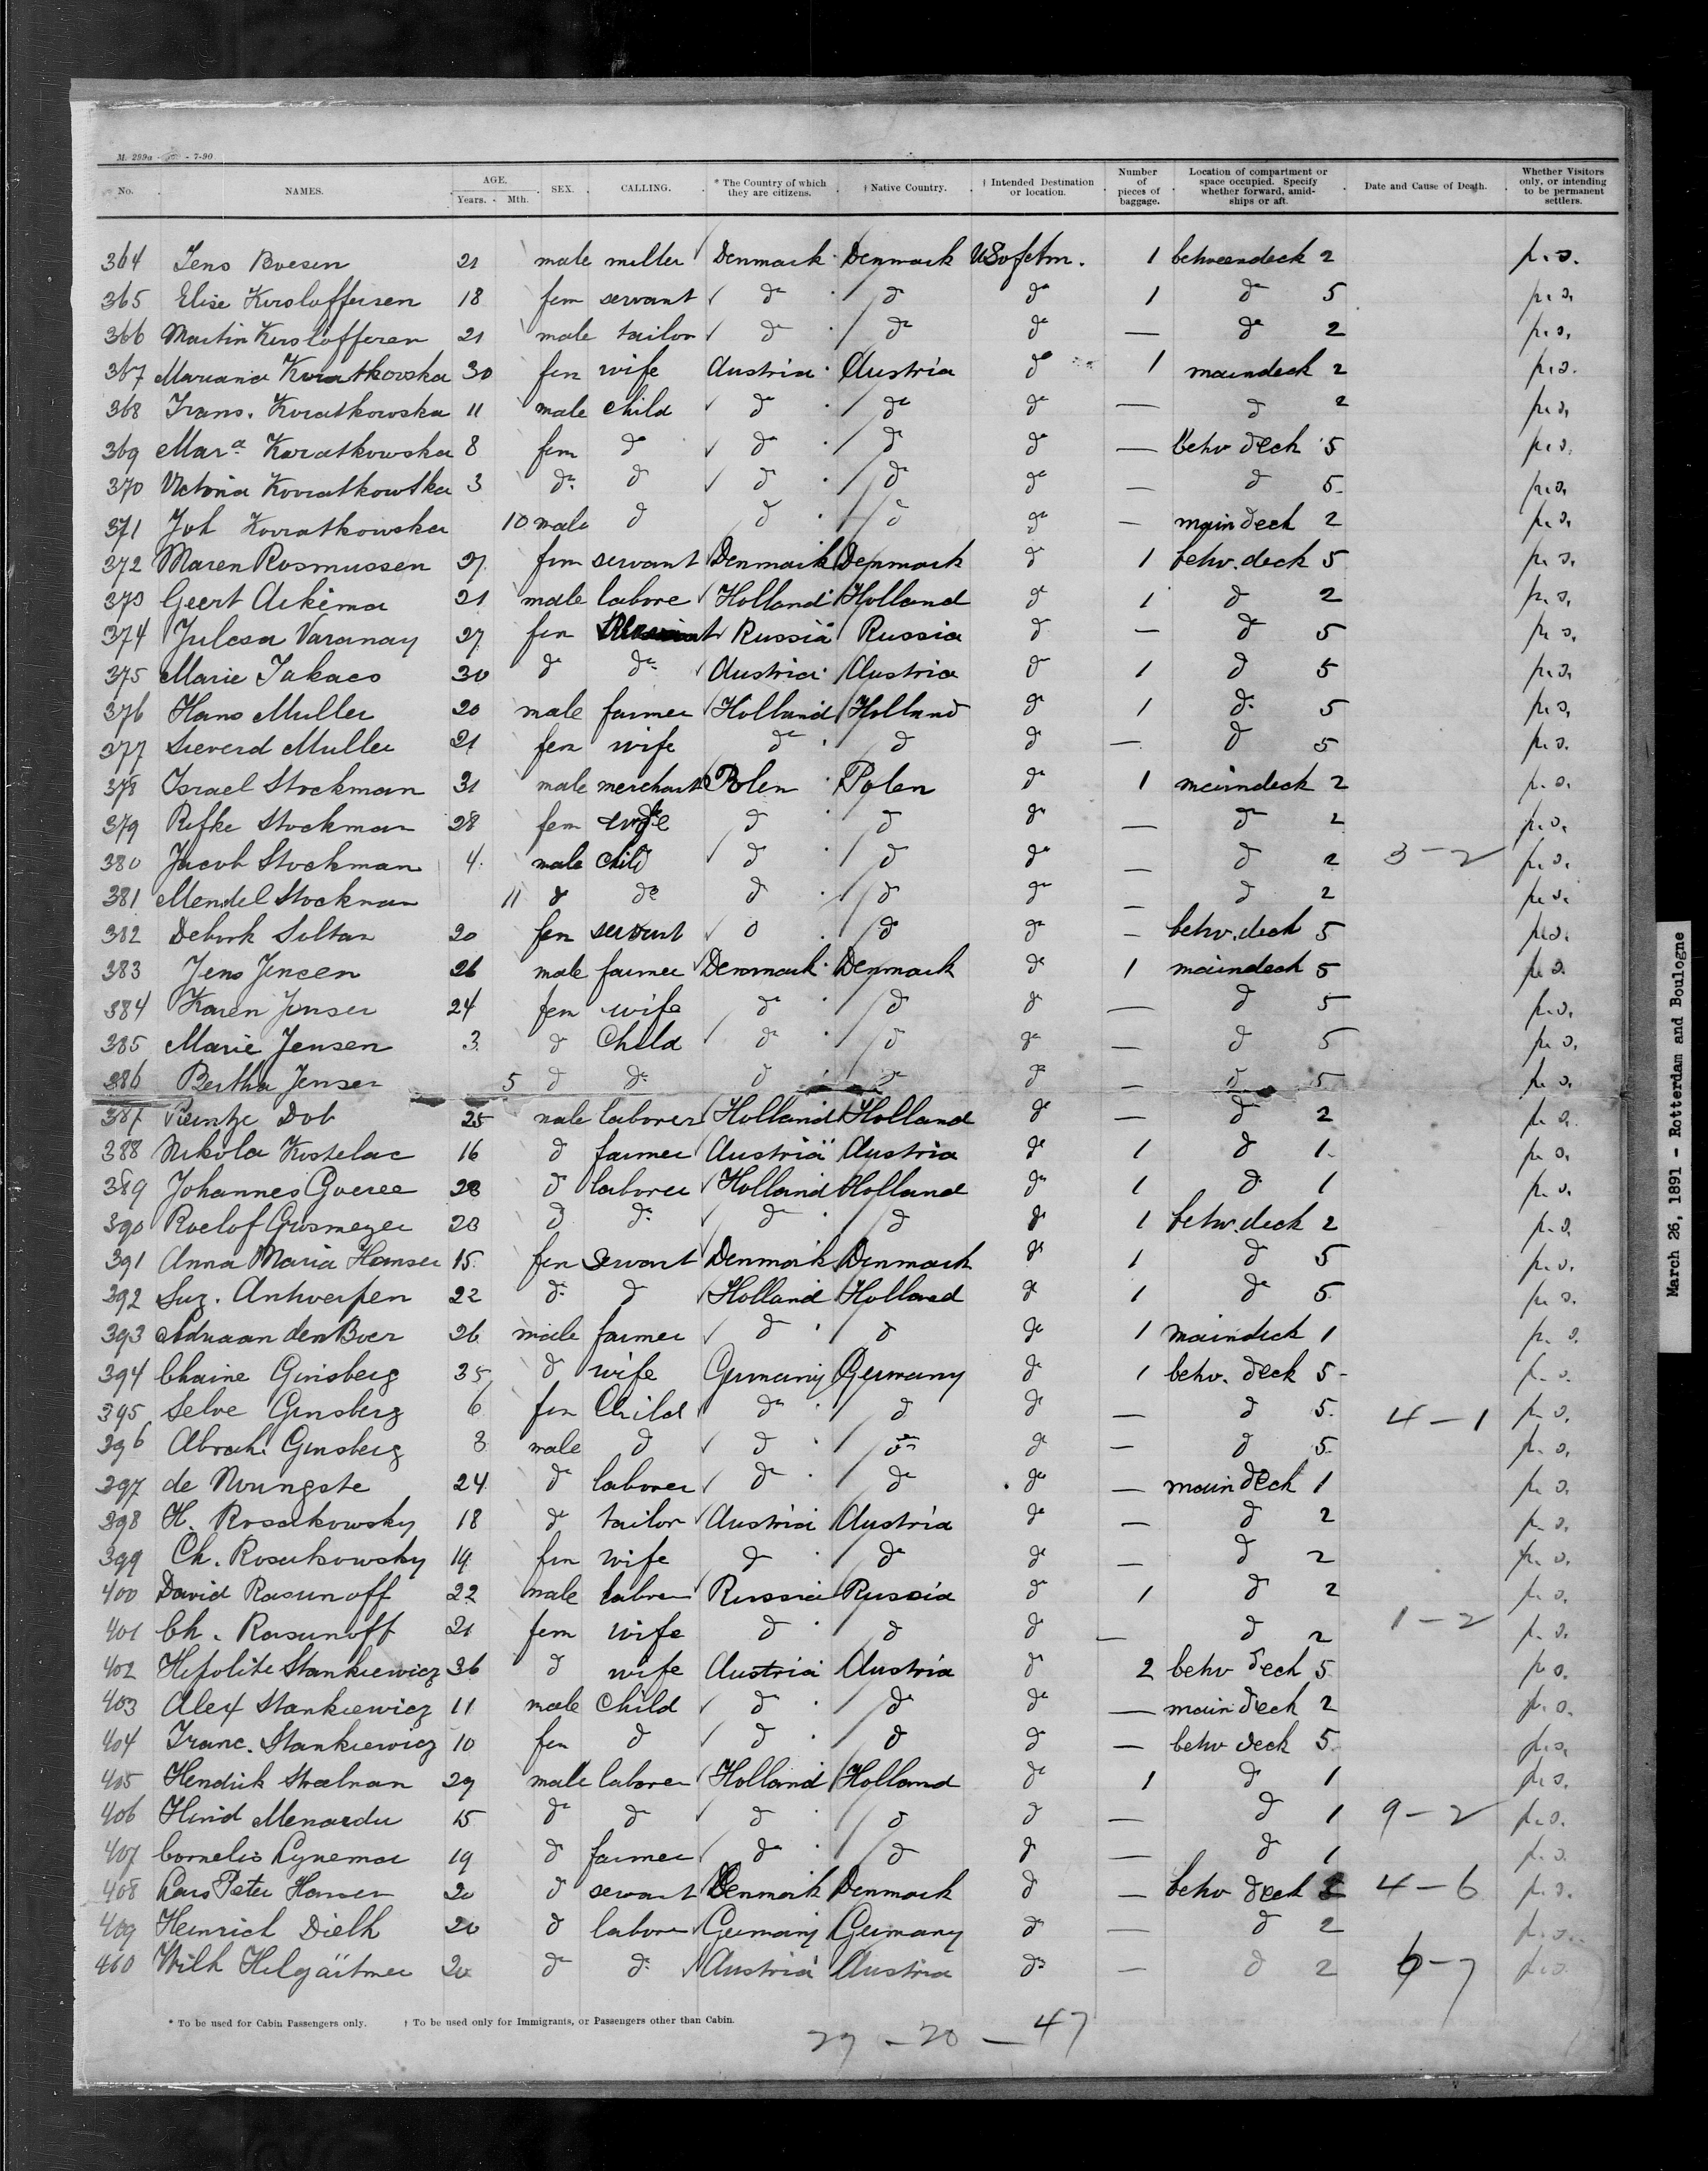 M. 299a - - 7-90
No. NAMES. AGE. Years. Mth. SEX. CALLING. * The Country of which they are citizens. † Native Country. † Intended Destination or location. Number of pieces of baggage. Location of compartment or space occupied. Specify whether forward, amidships or aft. Date and Cause of Death. Whether Visitors only, or intending to be permanent settlers.
364 Jens Boesen 21 male miller Denmark Denmark US of Am. 1 betweendeck 2 p. s.
365 Elise Kirsloffersen 18 fem servant do do do 1 do 5 p. s.
366 Martin Kirslofferen 21 male tailor do do do — do 2 p. s.
367 Mariana Kwiatkowska 30 fem wife Austria Austria do 1 maindeck 2 p. s.
368 Frans. Kwiatkowska 11 male child do do do — do 2 p. s.
369 Mara Kwiatkowska 8 fem do do do do — betw deck 5 p. s.
370 Victoria Kowatkowska 3 do do do do do — do 5 p. s.
371 Joh Kowatkowska 10 male do do do do — main deck 2 p. s.
372 Maren Rasmussen 27 fem servant Denmark Denmark do 1 betw. deck 5 p. s.
373 Geert Arkema 21 male labore Holland Holland do 1 do 2 p. s.
374 Julcsa Varanay 27 fem Russia Russia do — do 5 p. s.
375 Marie Takacs 30 do do Austria Austria do 1 do 5 p. s.
376 Hans Muller 20 male farmer Holland Holland do 1 do 5 p. s.
377 Sieverd Muller 21 fem wife do do do — do 5 p. s.
378 Israel Stockman 31 male merchant Polen Polen do 1 maindeck 2 p. s.
379 Rifke Stockman 28 fem wife do do do — do 2 p. s.
380 Jacob Stockman 4 male child do do do — do 2 3-2 p. s.
381 Mendel Stockman 11 do do do do do — do 2 p. s.
382 Debork Sultan 20 fem servant do do do — betw. deck 5 p. s.
383 Jens Jensen 26 male farmer Denmark Denmark do 1 maindeck 5 p. s.
384 Karen Jensen 24 fem wife do do do — do 5 p. s.
385 Marie Jensen 3 do Child do do do — do 5 p. s.
386 Bertha Jensen 5 do do do do do — do 5 p. s.
387 Dob 25 male laborer Holland Holland do — do 2 p. s.
388 Nikola Kostelac 16 do farmer Austria Austria do 1 do 1 p. s.
389 Johannes Goeree 28 do laborer Holland Holland do 1 do 1 p. s.
390 Roelof Grosmeyer 20 do do do do do 1 betw. deck 2 p. s.
391 Anna Maria Hansen 15 fem Servant Denmark Denmark do 1 do 5 p. s.
392 Suz. Antwerpen 22 do do Holland Holland do 1 do 5 p. s.
393 Adriaan den Boer 26 male farmer do do do 1 maindeck 1 p. s.
394 Chaine Ginsberg 35 do wife Germany Germany do 1 betw. deck 5 p. s.
395 Selve Ginsberg 6 fem Child do do do — do 5 4-1 p. s.
396 Abrah. Ginsberg 3 male do do do do — do 5 p. s.
397 de Noungste 24 do laborer do do do — main deck 1 p. s.
398 H. Rosukowsky 18 do tailor Austria Austria do — do 2 p. s.
399 Ch. Rosukowsky 19 fem wife do do do — do 2 p. s.
400 David Rasunoff 22 male labrer Russia Russia do 1 do 2 p. s.
401 Ch. Rasunoff 21 fem wife do do do — do 2 1-2 p. s.
402 Hipolite Stankiewicz 36 do wife Austria Austria do 2 betw deck 5 p. s.
403 Alex Stankiewicz 11 male Child do do do — main deck 2 p. s.
404 Franc. Stankiewicz 10 fem do do do do — betw deck 5 p. s.
405 Hendrik Straelman 29 male laborer Holland Holland do 1 do 1 p. s.
406 Hind Menardu 15 do do do do do — do 1 9-2 p. s.
407 Cornelis Cynema 19 do farmer do do do — do 1 p. s.
408 Lars Peter Hansen 20 do servant Denmark Denmark do — betw deck 2 4-6 p. s.
409 Heinrich Dielh 20 do laborer Germany Germany do — do 2 p. s.
460 Wilh Hilgäitner 20 do do Austria Austria do — do 2 6-7 p. s.
* To be used for Cabin Passengers only. † To be used only for Immigrants, or Passengers other than Cabin.
27-20-47
March 26, 1891 - Rotterdam and Boulogne